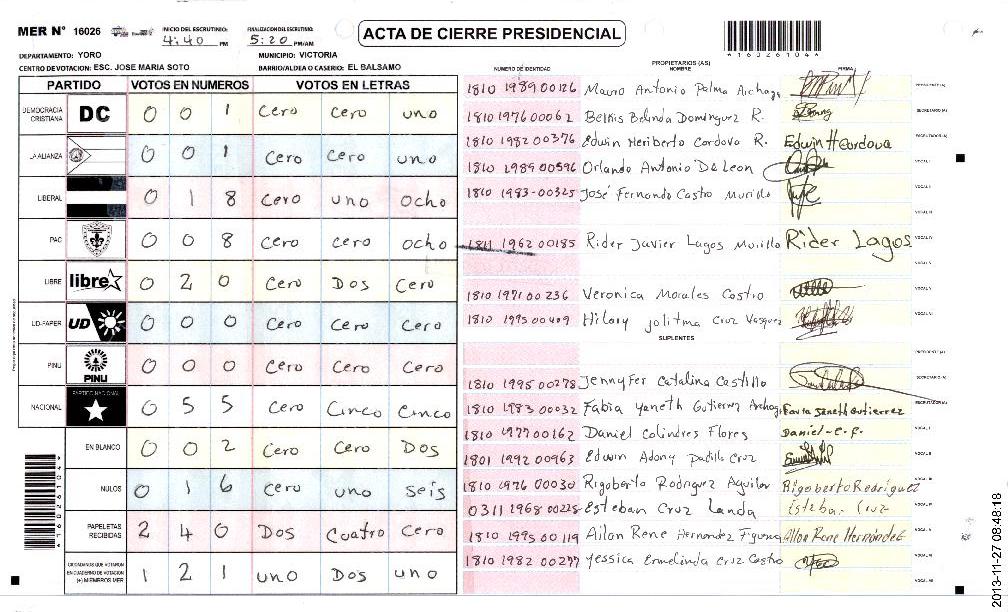 MER N° 16026
INICIO DEL ESCRUTINIO: 4:40 PM
FINALIZACION DEL ESCRUTINIO: 5:20 PM/AM
ACTA DE CIERRE PRESIDENCIAL
DEPARTAMENTO: YORO MUNICIPIO: VICTORIA
CENTRO DE VOTACION: ESC. JOSE MARIA SOTO BARRIO/ALDEA O CASERIO: EL BALSAMO
PARTIDO VOTOS EN NUMEROS VOTOS EN LETRAS
DEMOCRACIA CRISTIANA DC 0 0 1 Cero Cero uno
LA ALIANZA 0 0 1 Cero Cero uno
LIBERAL 0 1 8 Cero uno ocho
PAC 0 0 8 Cero Cero ocho
LIBRE libre 0 2 0 Cero Dos Cero
UD-FAPER UD 0 0 0 Cero Cero Cero
PINU PINU 0 0 0 Cero Cero Cero
NACIONAL PARTIDO NACIONAL 0 5 5 Cero Cinco Cinco
EN BLANCO 0 0 2 Cero Cero Dos
NULOS 0 1 6 Cero uno seis
PAPELETAS RECIBIDAS 2 4 0 Dos Cuatro Cero
CIUDADANOS QUE VOTARON EN CUADERNO DE VOTACION (+) MIEMBROS MER 1 2 1 uno Dos uno
PROPIETARIOS (AS)
NUMERO DE IDENTIDAD NOMBRE FIRMA
1810 1989 00126 Mauro Antonio Palma Archaga
1810 1976 00062 Belkis Belinda Dominguez R.
1810 1982 00376 Edwin Heriberto Cordova R. Edwin H Cordova
1810 1989 00596 Orlando Antonio De Leon
1810 1983-00325 José Fernando Castro Murillo
1811 1962 00185 Rider Javier Lagos Murillo Rider Lagos
1810 1971 00236 Veronica Morales Castro
1810 1995 00409 Hilary Jolitma Cruz Vasquez
SUPLENTES
1810 1995 00278 Jennyfer Catalina Castillo
1810 1983 00032 Fabia Yaneth Gutierrez Archaga Favia Janeth Gutierrez
1810 1977 00162 Daniel Colindres Flores Daniel-C.F.
1801 1992 00963 Edwin Adony Padilla Cruz
1810 1976 00030 Rigoberto Rodriguez Aguilar Rigoberto Rodriguez
0311 1968 00225 Esteban Cruz Landa Esteban Cruz
1810 1995 00119 Ailan Rene Hernandez Figueroa Allan Rene Hernández
1810 1982 00277 Yessica Ermelinda Cruz Castro
*160261041*
2013-11-27 08:48:18